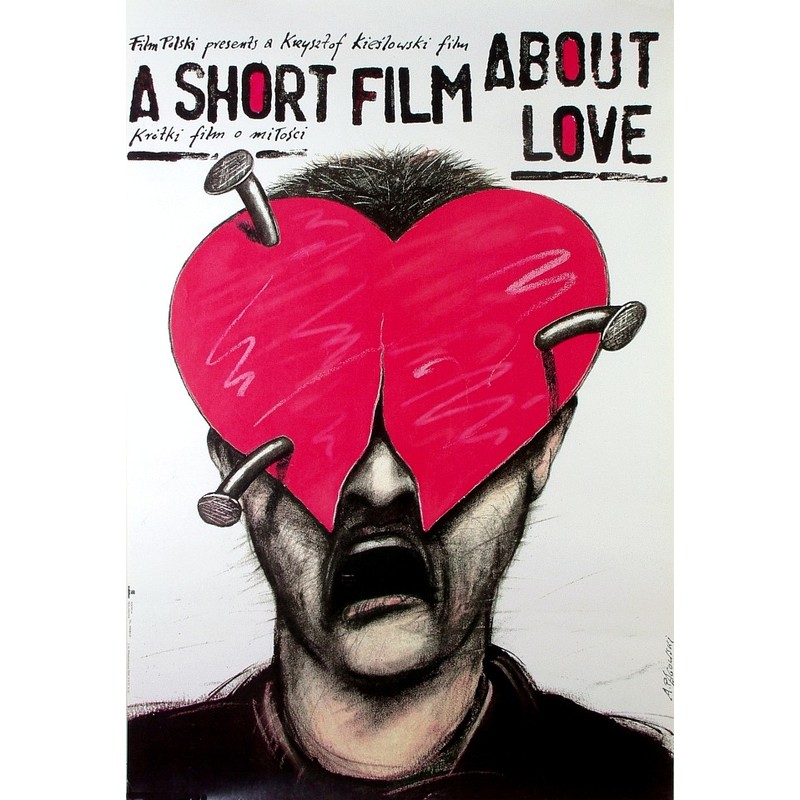 Film Polski presents a Krzysztof Kieślowski film
A SHORT FILM ABOUT
LOVE
Krótki film o miłości
A. Pągowski